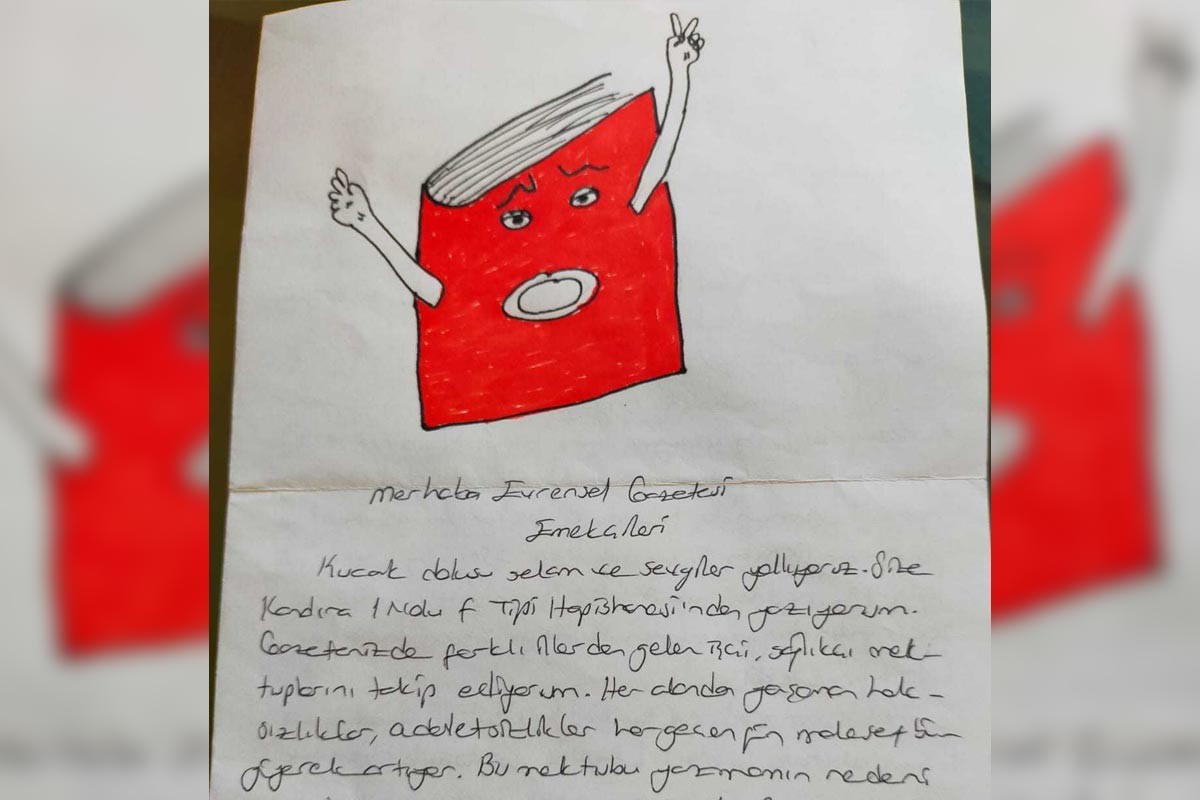 Merhaba Evrensel Gazetesi
Emekçileri
Kucak dolusu selam ve sevgiler yolluyoruz. Size
Kandıra 1 Nolu F Tipi Hapishanesi'nden yazıyorum.
Gazetenizde farklı illerden gelen işçi, sağlıkçı mek-
tuplarını takip ediyorum. Her alanda yaşanan hak-
sızlıklar, adaletsizlikler her geçen gün malesef
giyerek artıyor. Bu mektubu yazmamın nedeni